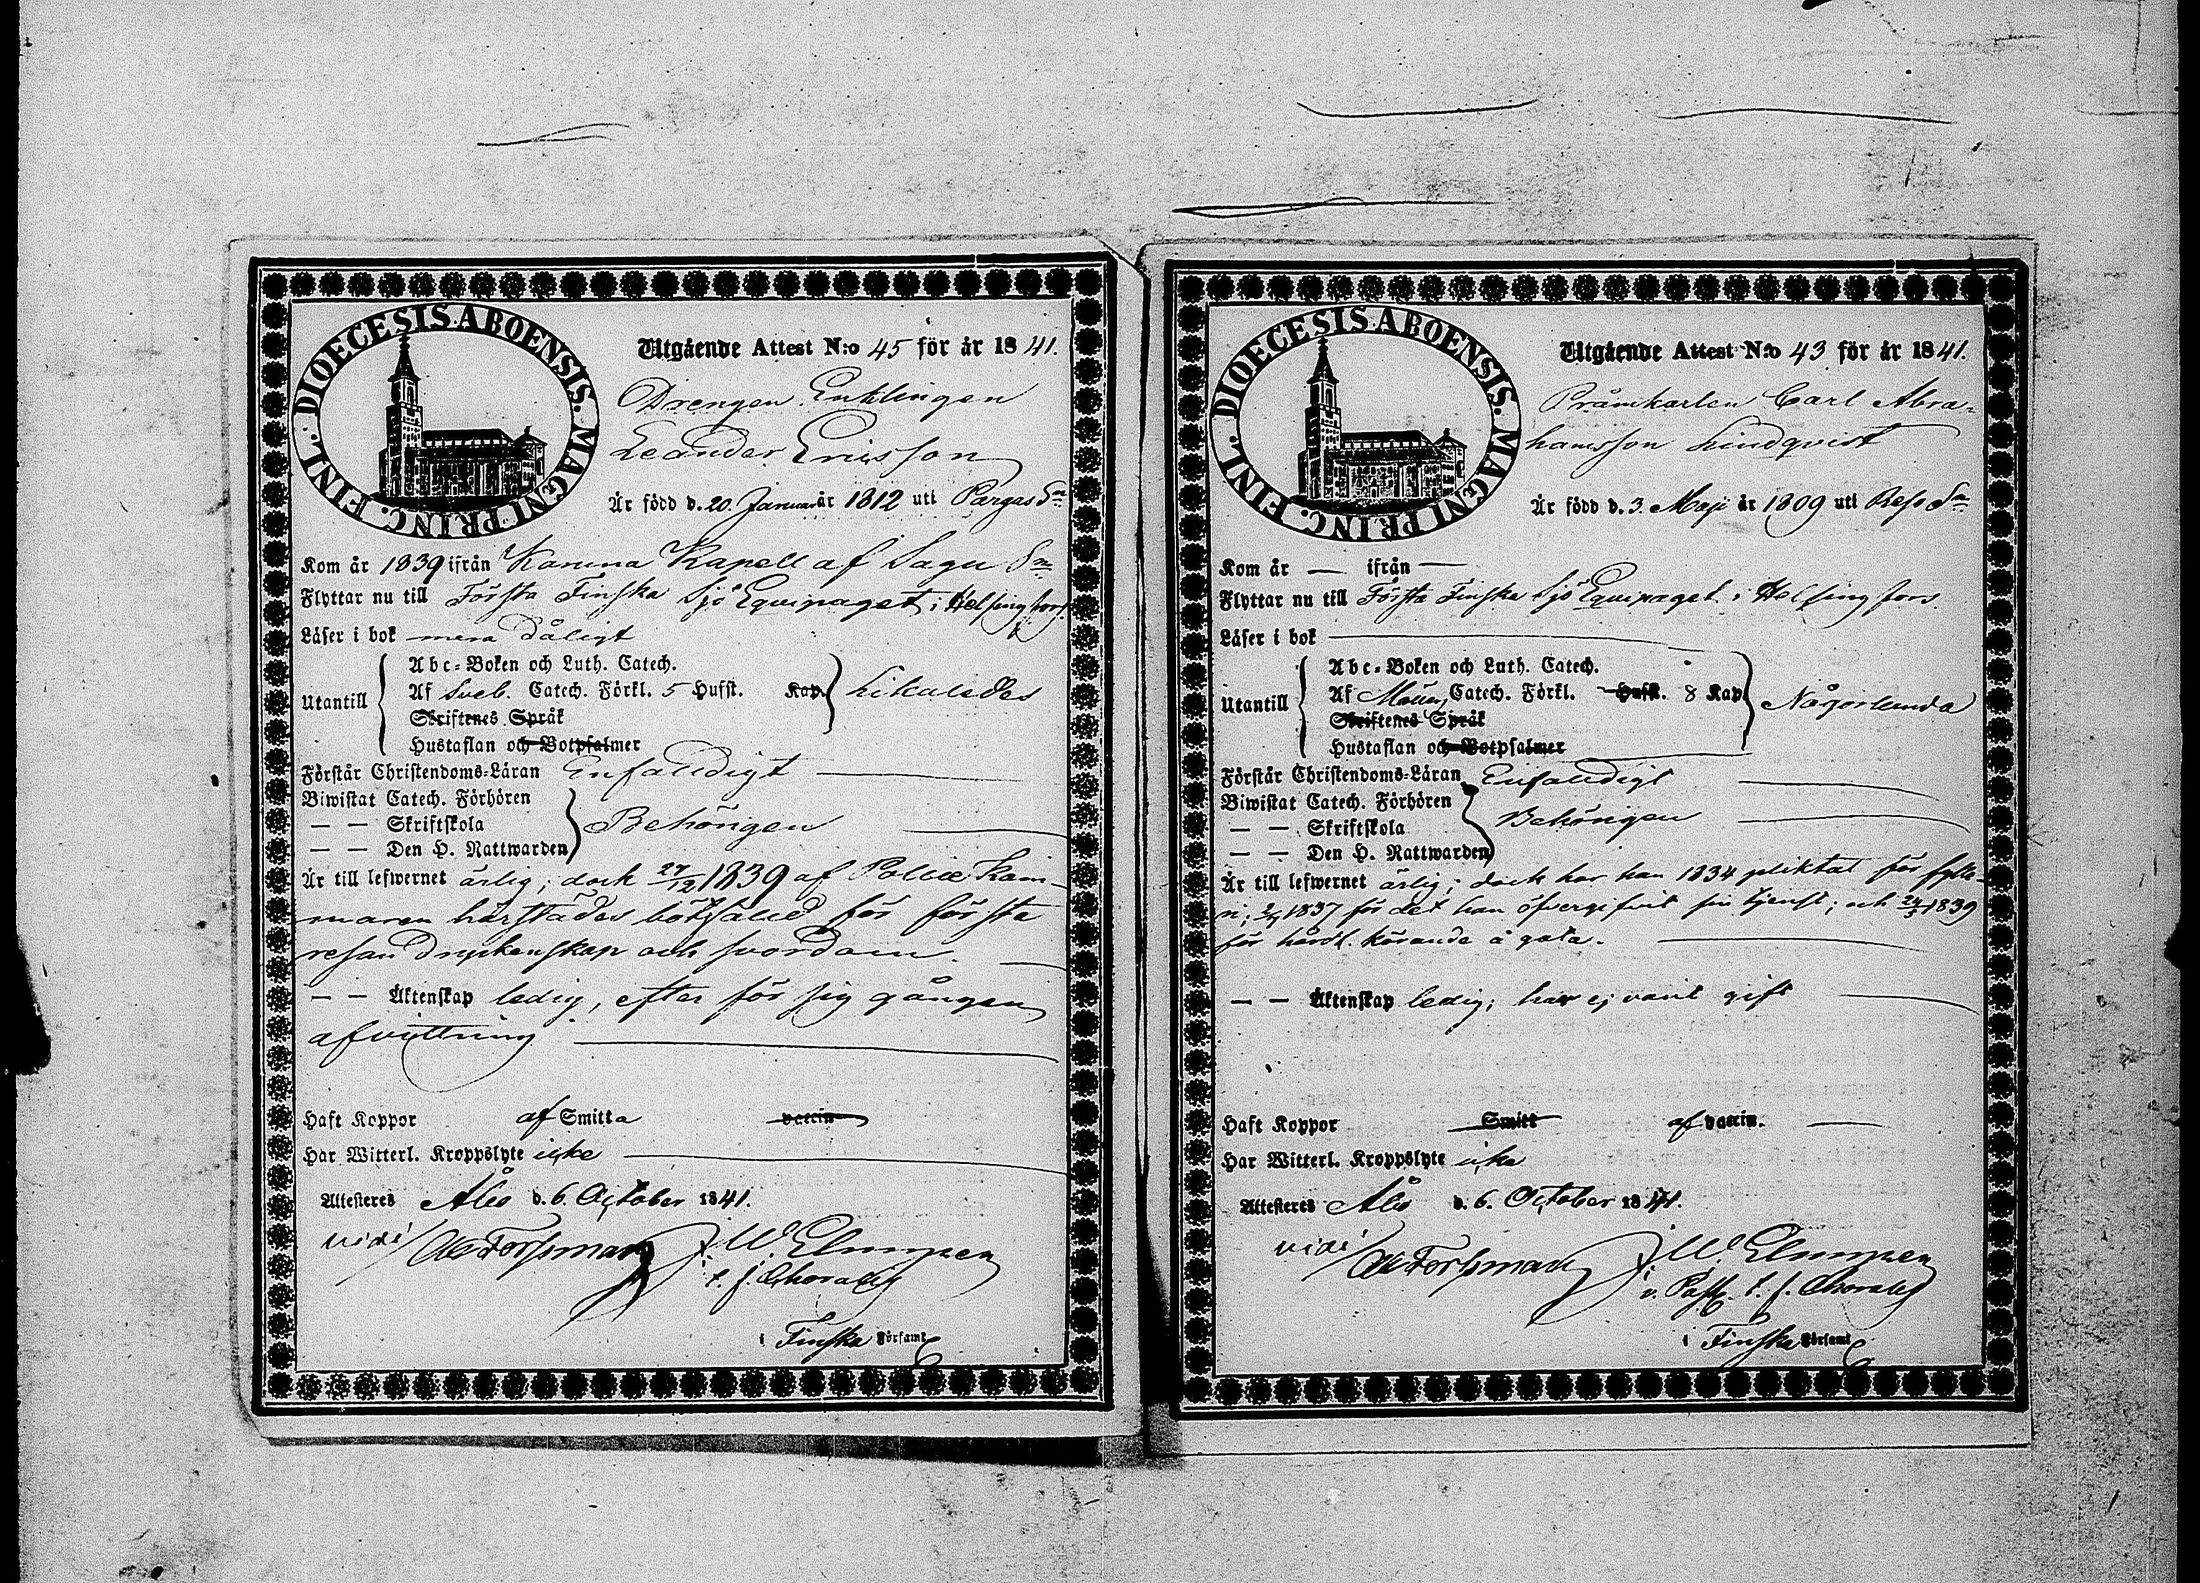 DIOECESIS ABOENSIS. MAGNI PRINC. FINL.
Utgående Attest N:o 45 för år 1841.
Drengen Enklingen
Leander Ericsson
Är född d. 20 Januar år 1812 uti Pargas Sn
Kom år 1839 ifrån Karuna Kapell af Sagu Sn
Flyttar nu till Första Finska Sjö Equipaget i Helsingfors
Läser i bok mera dåligt
Utantill
Abc-Boken och Luth. Catech.
Af Sveb. Catech. Förkl. 5 Hufst. Kap.
Skriftenes Språk
Hustaflan och Botpsalmer
Likaledes
Förstår Christendoms-Läran Enfaldigt
Biwistat Catech. Förhören
— — Skriftskola
— — Den H. Nattwarden
Behörigen
Är till lefwernet ärlig; dock 27/12 1839 af Police Kam-
maren härstädes bötfälld för första
resan dryckenskap och svordom.
— — Äktenskap ledig, efter för sig gången
afvittring
Haft Koppor af Smitta vaccin
Har Witterl. Kroppslyte icke
Attesteres Åbo d. 6 October 1841.
vidi
Forssman
J. W. Elmgren
t. f.
i Finska Församl.
DIOECESIS ABOENSIS. MAGNI PRINC. FINL.
Utgående Attest N:o 43 för år 1841.
Pråmkarlen Carl Abra-
hamsson Lindqvist
Är född d. 3 Maji år 1809 uti Reso Sn
Kom år — ifrån —
Flyttar nu till Första Finska Sjö Equipaget i Helsingfors
Läser i bok
Utantill
Abc-Boken och Luth. Catech.
Af Catech. Förkl. Hufst. 8 Kap.
Skriftenes Språk
Hustaflan och Botpsalmer
Någorlunda
Förstår Christendoms-Läran Enfaldigt
Biwistat Catech. Förhören
— — Skriftskola
— — Den H. Nattwarden
Behörigen
Är till lefwernet ärlig; dock har han 1834 pliktat för fylle-
ri; 1837 för det han öfvergifvit sin tjenst; och 1839
för hårdt körande å gata.
— — Äktenskap ledig; har ej varit gift
Haft Koppor Smitt af vaccin.
Har Witterl. Kroppslyte icke
Attesteres Åbo d. 6. October 1841.
vidi
Forssman
J. W. Elmgren
v. Past. t. f.
i Finska Församl